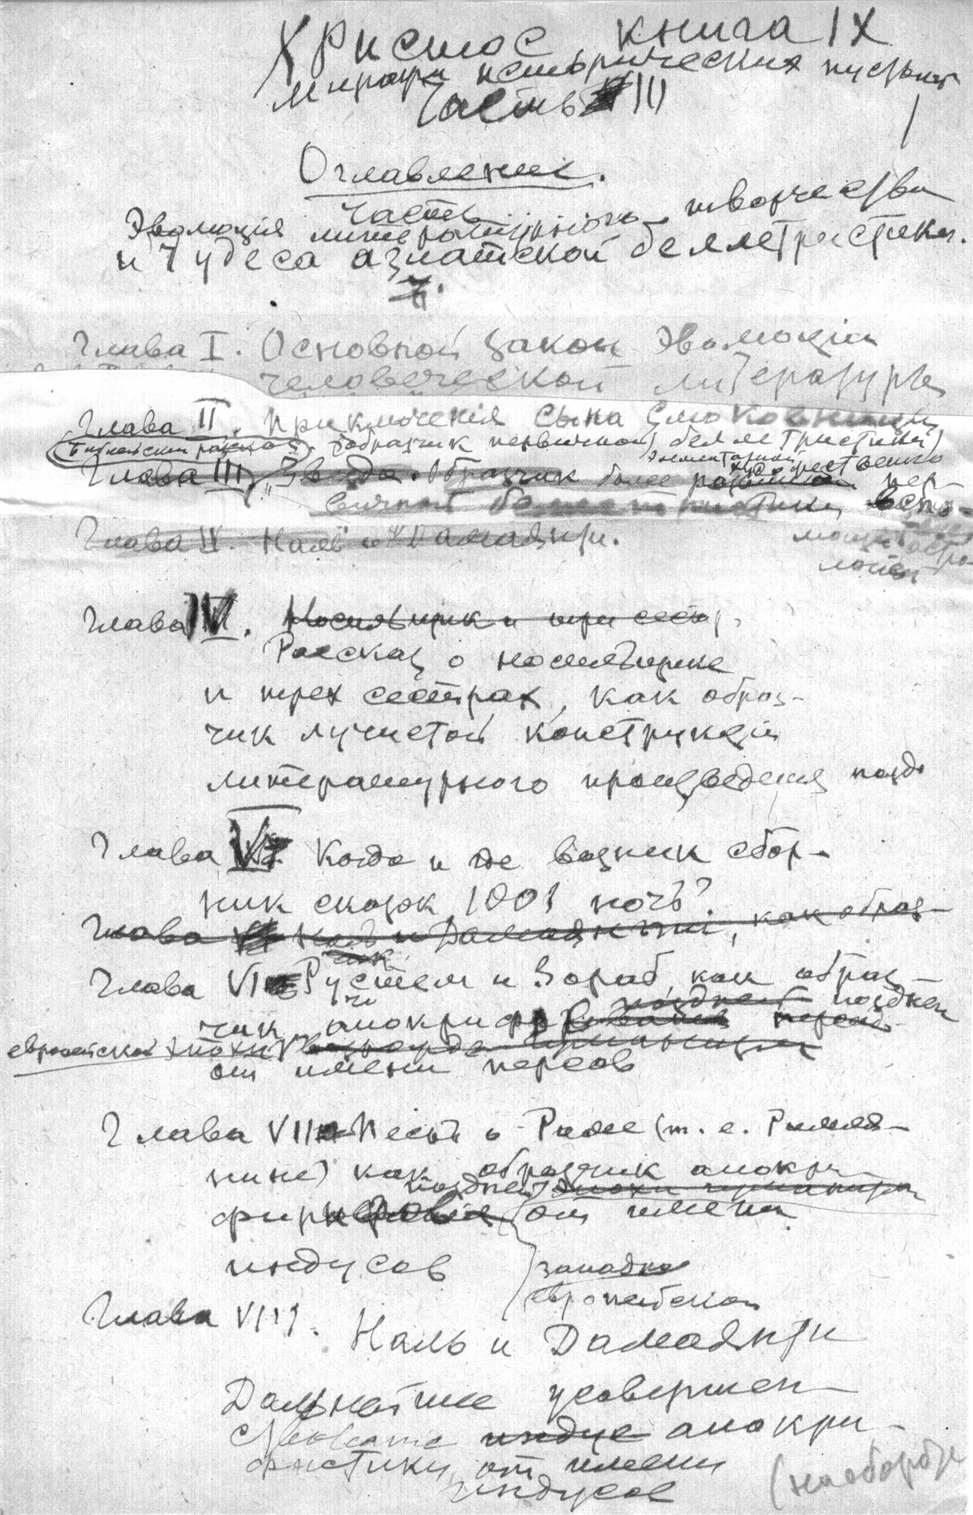 Христос книга IX
Миражи исторических пустынь
Часть III
Оглавление.
часть
Эволюция литературного творчества
и Чудеса азиатской беллетристики.
Глава I. Основной закон эволюции
человеческой литературы
Глава II. Приключения сына Смоковницы
(Библейский рассказ). Образчик первичной беллетристики
Глава III, Звезда. Образчик более
вичной беллетристики
Глава IV. Наль и Дамаянти.
Глава IV. Носильщик и три сестр.
Рассказ о носильщике
и трех сестрах, как образ-
чик лучистой конструкции
литературного произведения
Глава V. Когда и где возник сбор-
ник сказок 1001 ночь?
Глава Наль и Дамаянти, как образ-
Глава VI Рустем и Зораб как образ-
чик апокриф поздней
европейской эпохи
от имени персов
Глава VII Песнь о Раме (т. е. Римля-
нине) как образчик апокри-
поздней эпохи гуманизма
от имени
индусов
западно
европейской
Глава VIII. Наль и Дамаянти
Дальнейшее усовершен-
ствование индус апокри-
фистики от имени
индусов
(на обороте